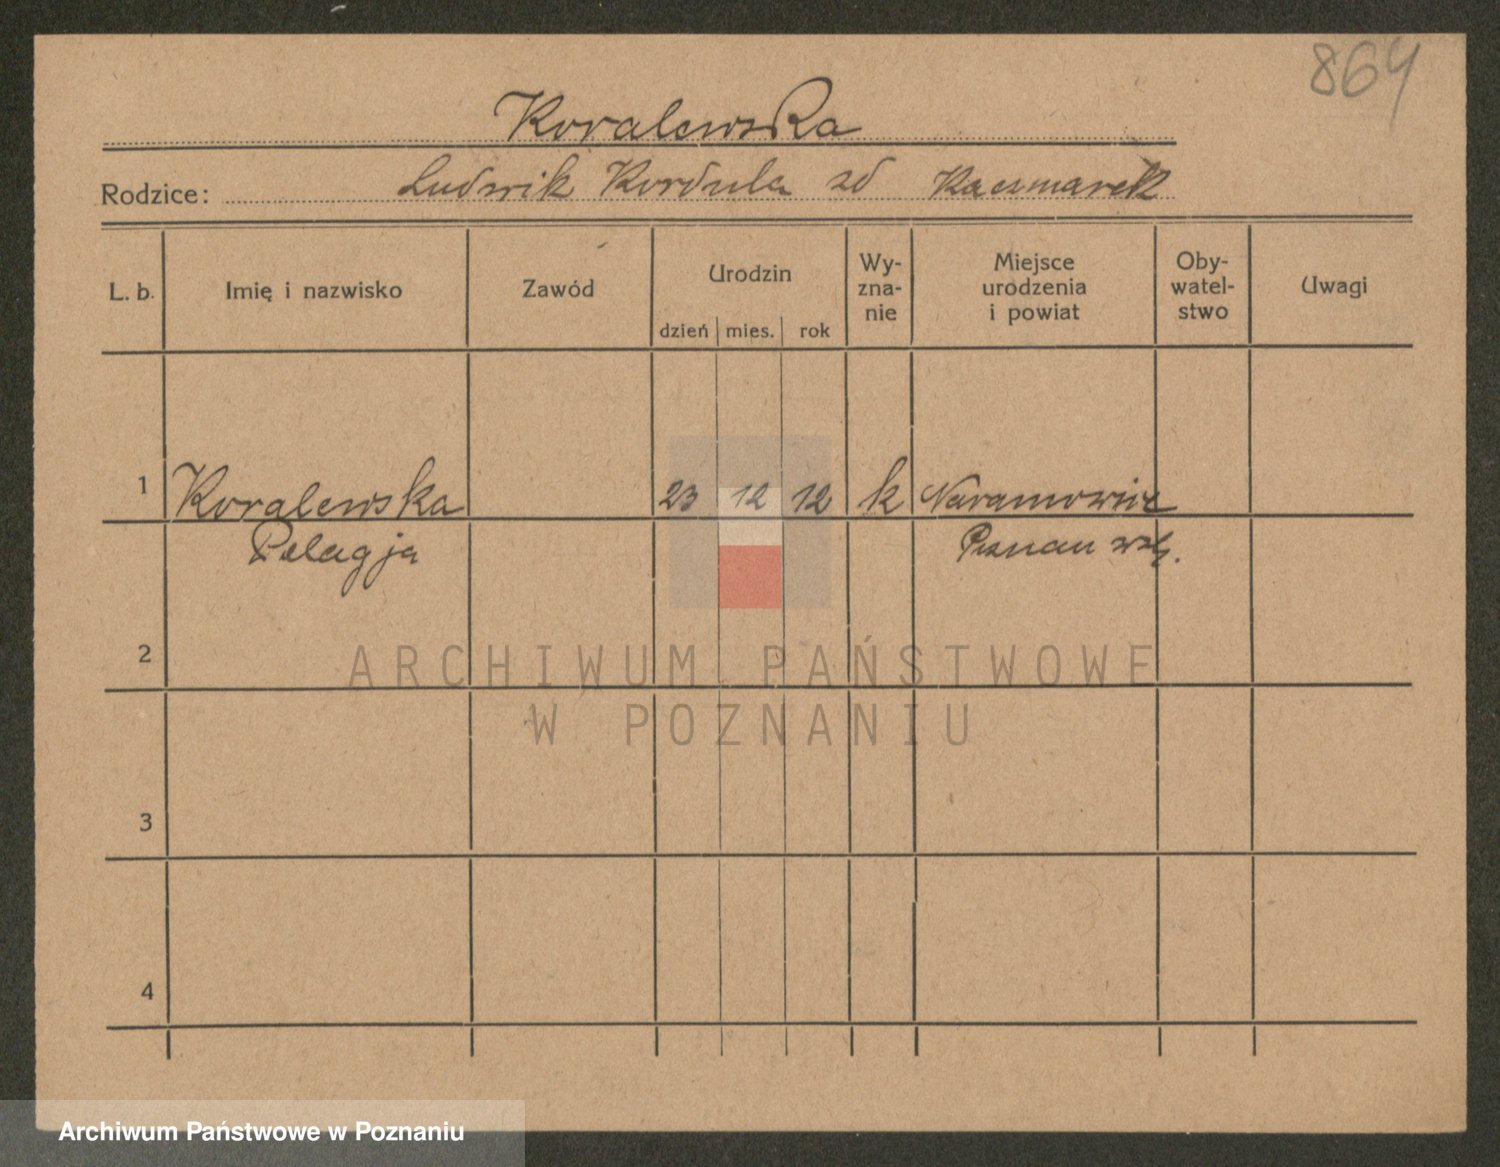 864
Koralewska
Rodzice: Ludwik Kordula zd Kaczmarek
L. b. Imię i nazwisko Zawód Urodzin dzień mies. rok Wy-zna-nie Miejsce urodzenia i powiat Oby-watel-stwo Uwagi
1 Koralewska 23 12 12 k Naramowice
Pelagja Poznań wsch.
2
3
4
ARCHIWUM PAŃSTWOWE
W POZNANIU
Archiwum Państwowe w Poznaniu